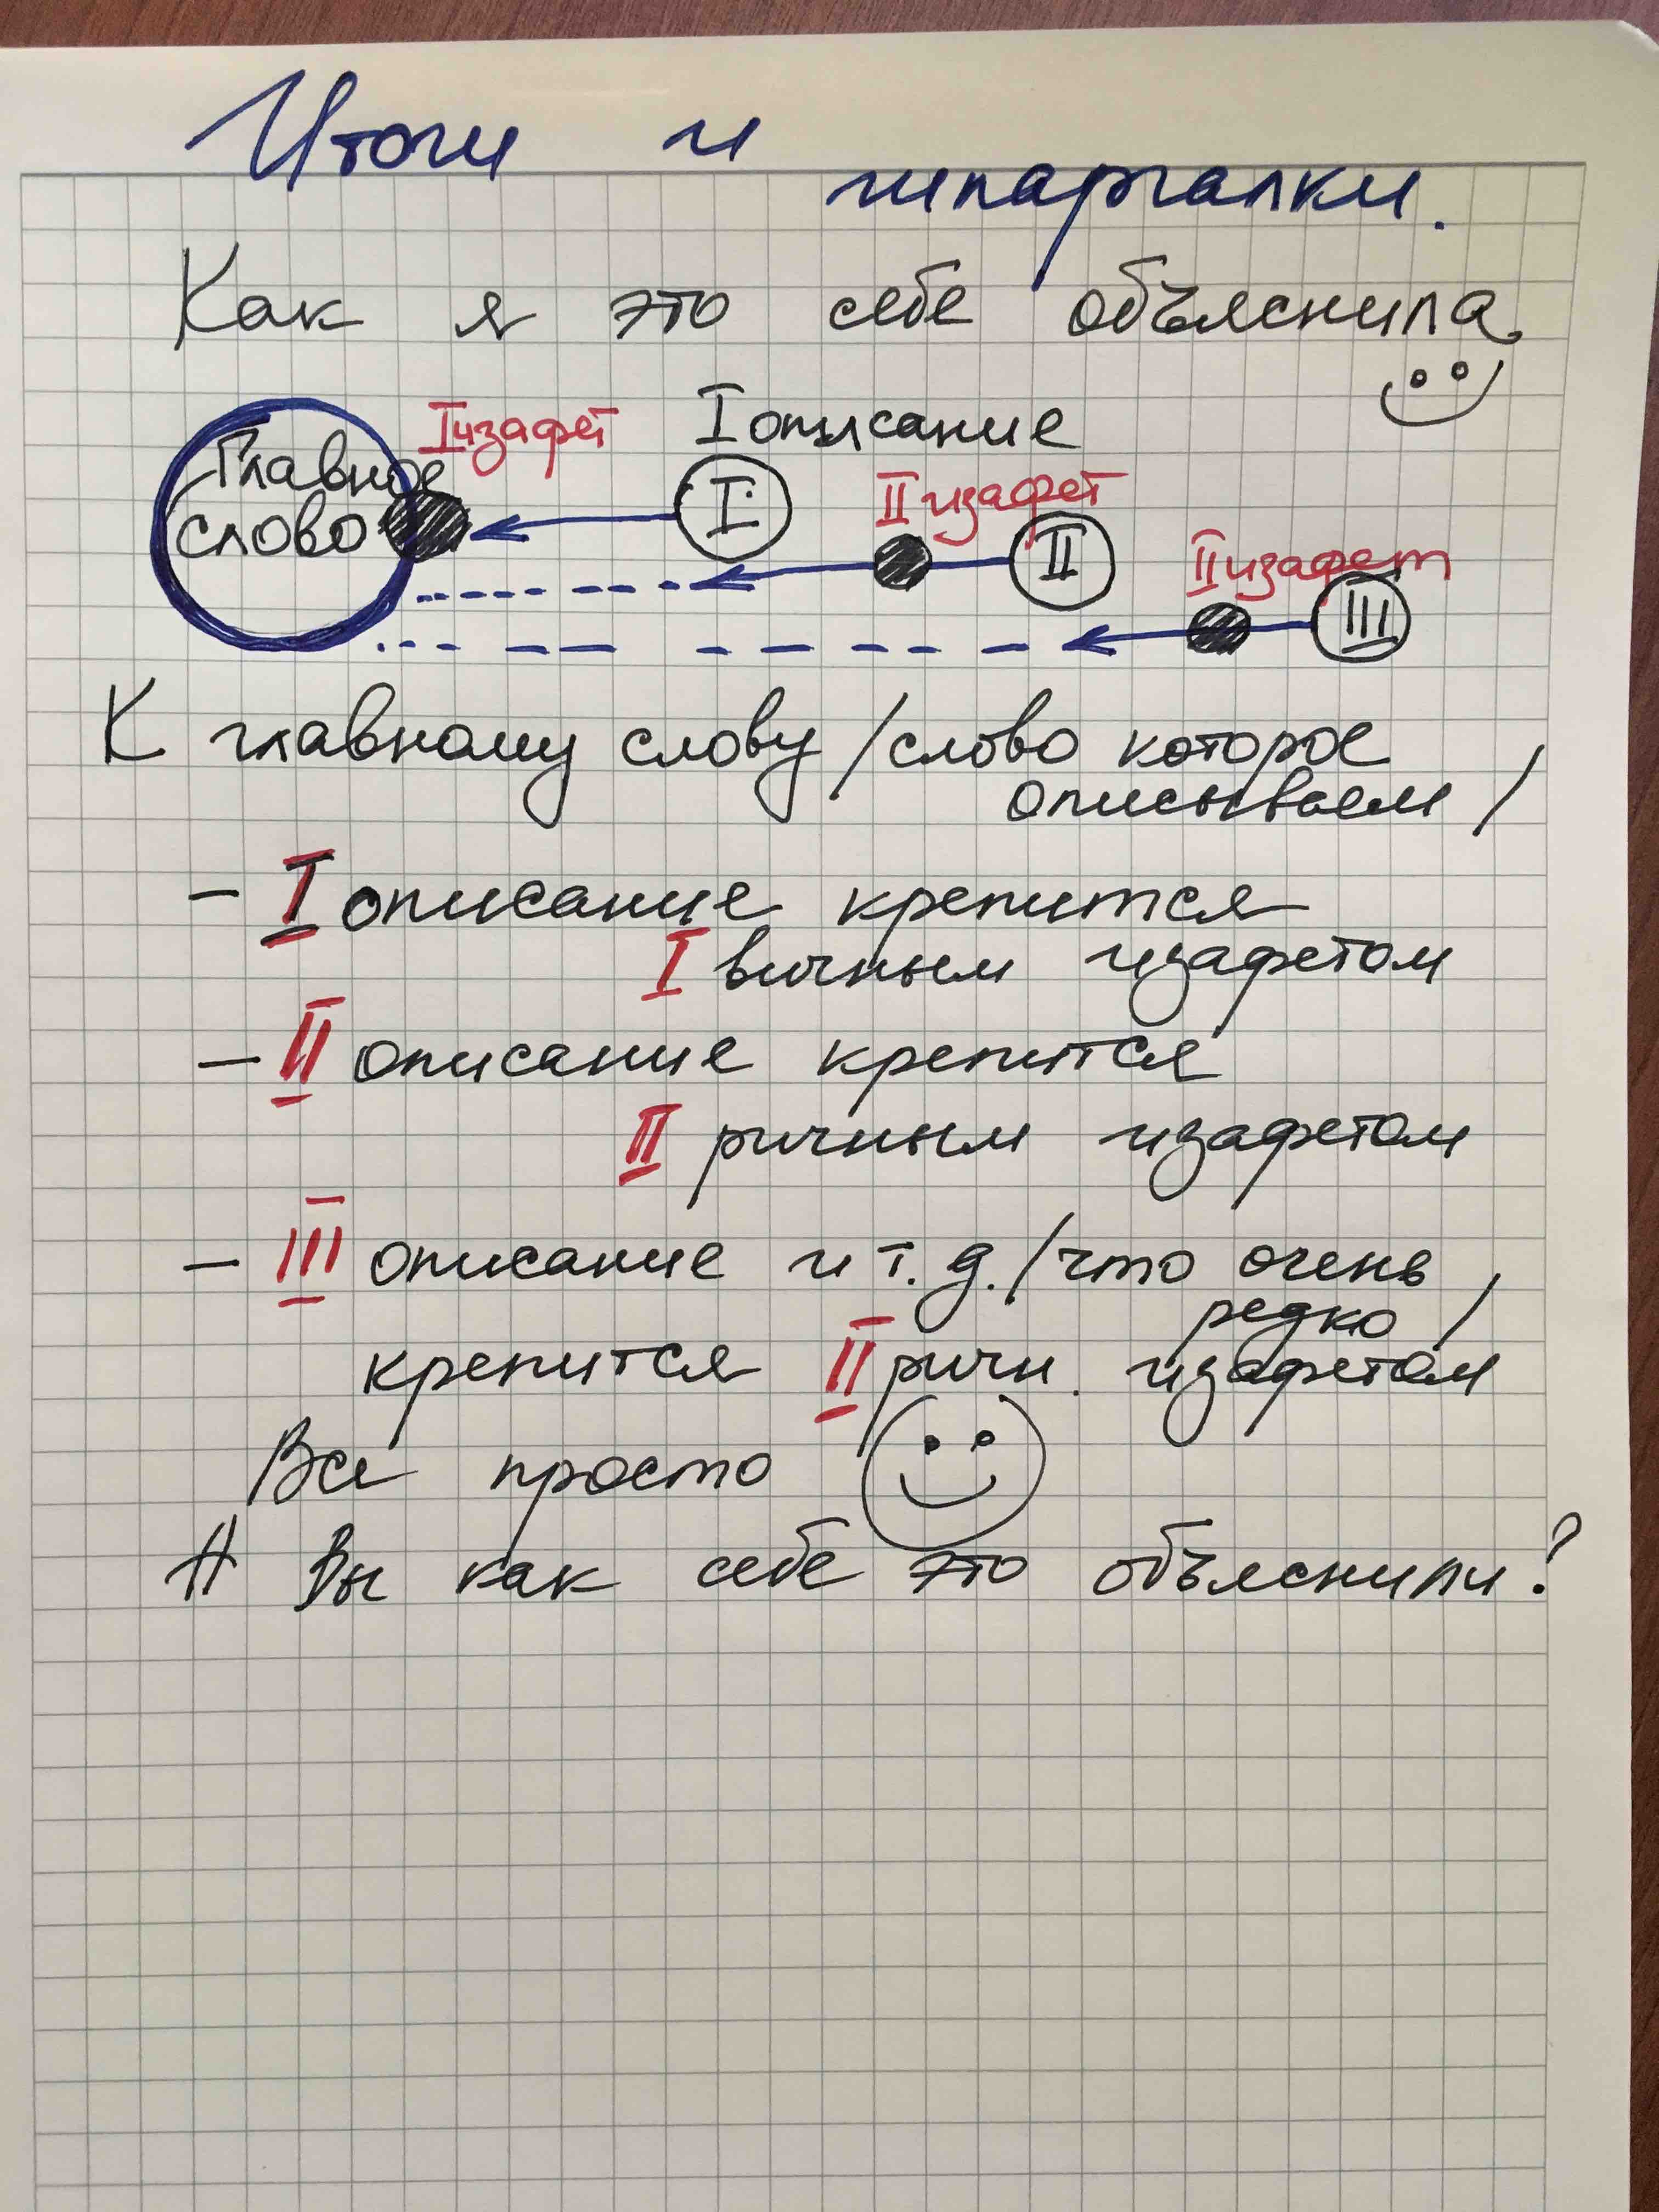 Итоги и
шпаргалки.
Как я это себе объяснила
Главное
слово
I изафет
I описание
I
II изафет
II
II изафет
III
К главному слову /слово которое
описываем/
- I описание крепится
I вичным изафетом
- II описание крепится
II ричным изафетом
- III описание и т.д. /что очень
редко/
крепится II ричн. изафетом
Все просто
А Вы как себе это объяснили?